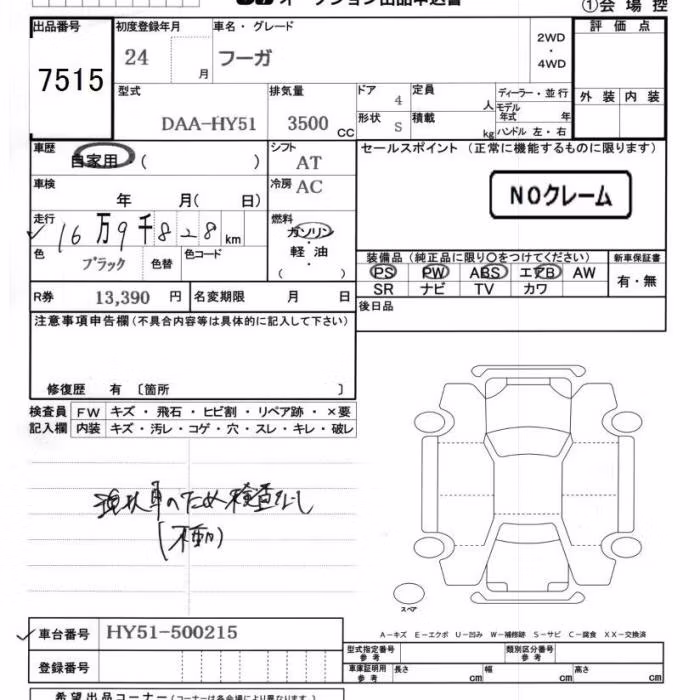 オークション出品申込書 ①会場控
出品番号 初度登録年月 車名・グレード 評価点
7515 24 月 フーガ 2WD ・ 4WD
型式 排気量 ドア 定員 ディーラー・並行 外装 内装
DAA-HY51 3500 CC 4 人 モデル年式 年
形状 S 積載 kg ハンドル 左・右
車歴 自家用 ( ) シフト AT セールスポイント (正常に機能するものに限ります)
車検 年 月( 日) 冷房 AC NOクレーム
走行 16万9千828km 燃料 ガソリン
軽油
( )
色 ブラック 色替 色コード 装備品 (純正品に限り○をつけてください) 新車保証書
PS PW ABS エアB AW 有・無
SR ナビ TV カワ
R券 13,390 円 名変期限 月 日 後日品
注意事項申告欄 (不具合内容等は具体的に記入して下さい)
修復歴 有 〔箇所 〕
検査員 FW キズ・飛石・ヒビ割・リペア跡・×要
記入欄 内装 キズ・汚レ・コゲ・穴・スレ・キレ・破レ
現状車のため検査なし
(不動)
スペア
A-キズ E-エクボ U-凹み W-補修跡 S-サビ C-腐食 XX-交換済
車台番号 HY51-500215 型式指定番号 参考 類別区分番号 参考
登録番号 車庫証明用 参考 長さ cm 幅 cm 高さ cm
希望出品コーナー (コーナーは各会場により異なります)